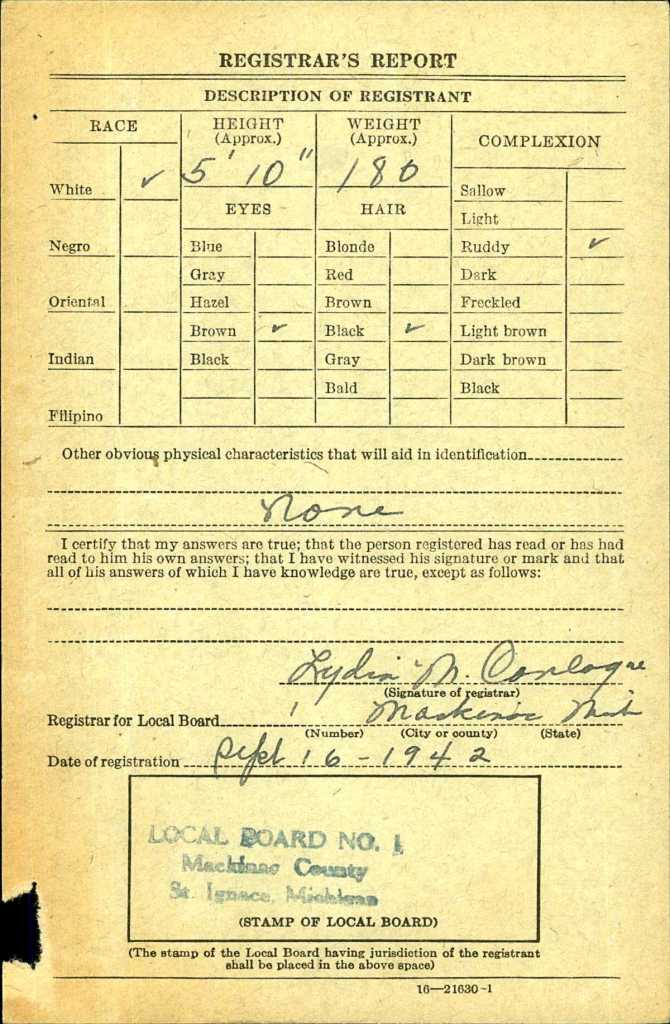 REGISTRAR'S REPORT
DESCRIPTION OF REGISTRANT
RACE
HEIGHT
(Approx.)
WEIGHT
(Approx.)
COMPLEXION
White ✓
5' 10"
180
Sallow
EYES
HAIR
Light
Negro
Blue
Blonde
Ruddy ✓
Gray
Red
Dark
Oriental
Hazel
Brown
Freckled
Brown ✓
Black ✓
Light brown
Indian
Black
Gray
Dark brown
Bald
Black
Filipino
Other obvious physical characteristics that will aid in identification
None
I certify that my answers are true; that the person registered has read or has had
read to him his own answers; that I have witnessed his signature or mark and that
all of his answers of which I have knowledge are true, except as follows:
Lydia M. Conlogue
(Signature of registrar)
Registrar for Local Board 1 Mackinac Mich
(Number) (City or county) (State)
Date of registration Sept 16-1942
LOCAL BOARD NO. 1
Mackinac County
St. Ignace, Michigan
(STAMP OF LOCAL BOARD)
(The stamp of the Local Board having jurisdiction of the registrant
shall be placed in the above space)
16—21630-1